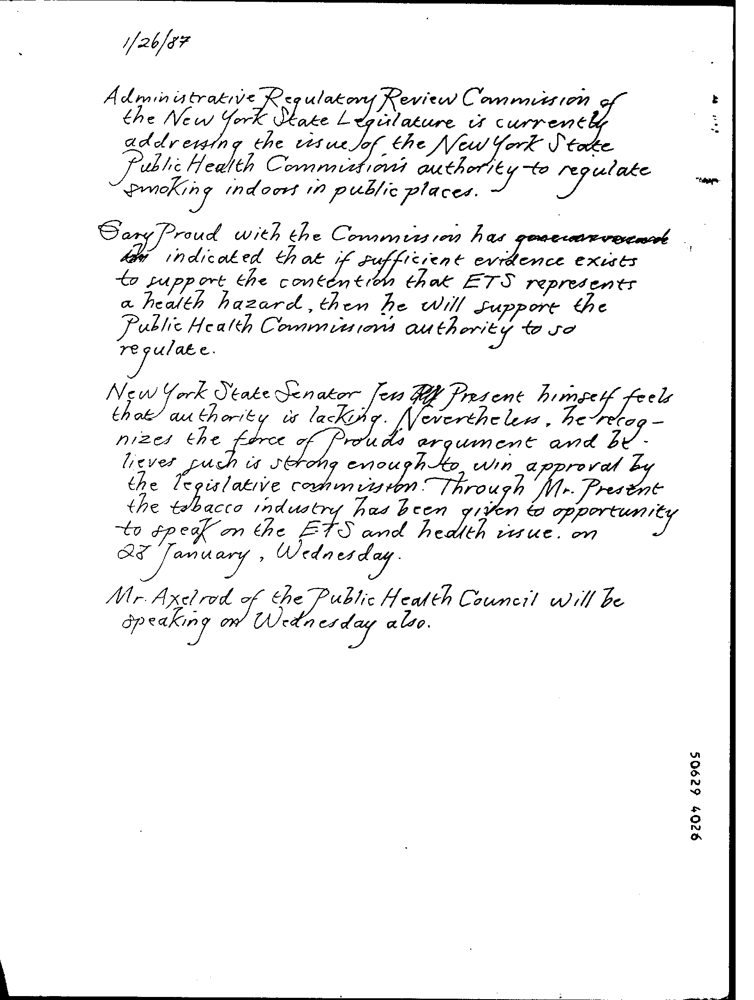 1/26/87
Administrative Regulatory Review Commission of
the New York State Legislature is currently
addressing the issue of the New York State
Public Health Commission's authority to regulate
smoking indoors in public places.
Gary Proud with the Commission has
indicated that if sufficient evidence exists
to support the contention that ETS represents
a health hazard, then he will support the
Public Health Commission's authority to so
regulate.
New York State Senator Jess Present himself feels
that authority is lacking. Nevertheless, he recog-
nizes the force of Proud's argument and be-
lieves such is strong enough to win approval by
the legislative commission. Through Mr. Present
the tobacco industry has been given to opportunity
to speak on the ETS and health issue. on
28 January, Wednesday.
Mr. Axelrod of the Public Health Council will be
speaking on Wednesday also.
50629 4026